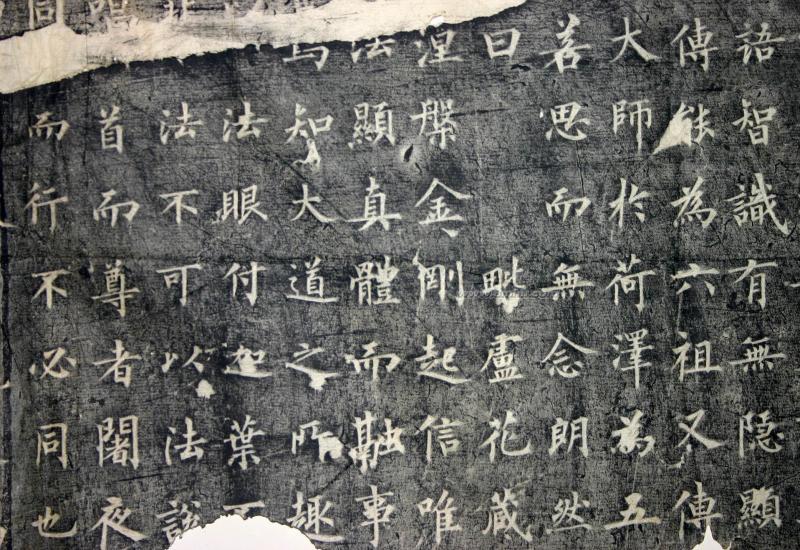 語智識有無隐顯
傳能為六祖又傳
大師於荷澤為五
善思而無念朗然
曰 毗盧花藏
涅槃金剛起信唯
法顯真體而融事
知大道之所趣
法眼付迦葉
法不可以法說
首而尊者闍夜
同 而行不必同也